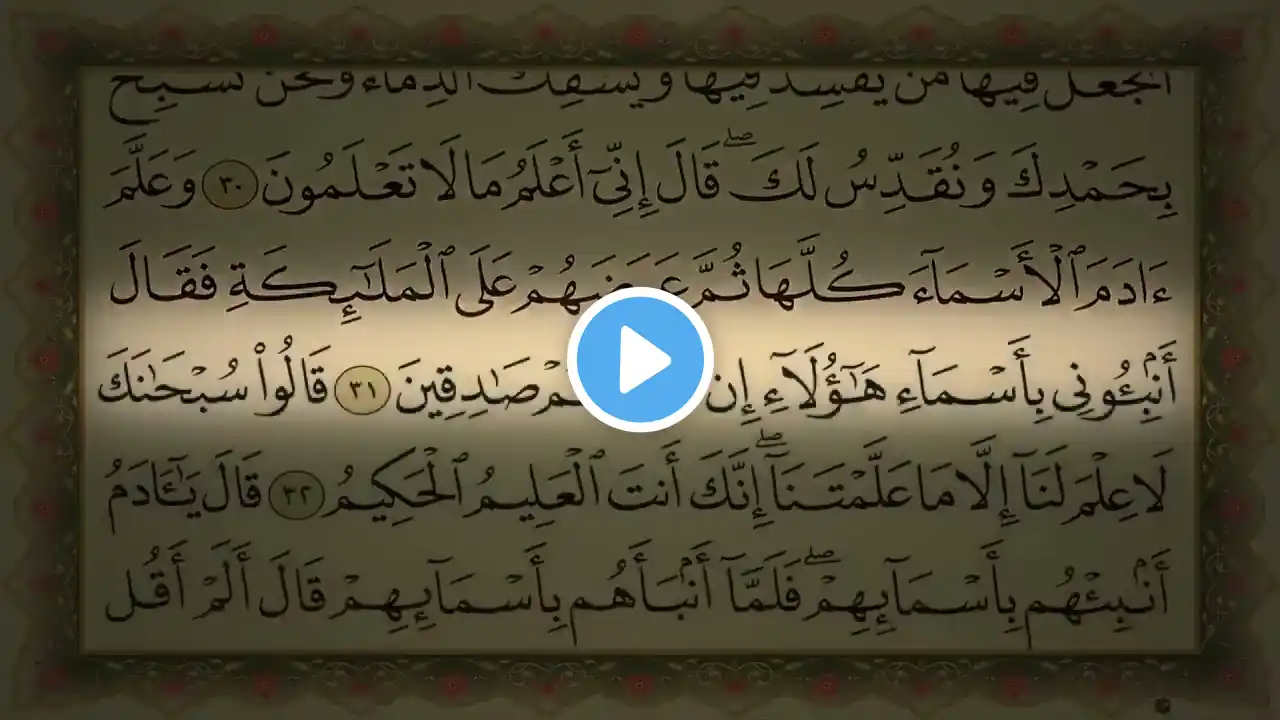 أَتَجْعَلُ فِيهَا مَن يُفْسِدُ فِيهَا وَيَسْفِكُ الدِّمَاءَ وَنَحْنُ نُسَبِّحُ
بِحَمْدِكَ وَنُقَدِّسُ لَكَ ۖ قَالَ إِنِّىٓ أَعْلَمُ مَا لَا تَعْلَمُونَ ٣٠ وَعَلَّمَ
ءَادَمَ ٱلْأَسْمَآءَ كُلَّهَا ثُمَّ عَرَضَهُمْ عَلَى ٱلْمَلَٰٓئِكَةِ فَقَالَ
أَنۢبِـُٔونِى بِأَسْمَآءِ هَٰٓؤُلَآءِ إِن صَٰدِقِينَ ٣١ قَالُوا۟ سُبْحَٰنَكَ
لَا عِلْمَ لَنَآ إِلَّا مَا عَلَّمْتَنَآ ۖ إِنَّكَ أَنتَ ٱلْعَلِيمُ ٱلْحَكِيمُ ٣٢ قَالَ يَٰٓـَٔادَمُ
أَنۢبِئْهُم بِأَسْمَآئِهِمْ ۖ فَلَمَّآ أَنۢبَأَهُم بِأَسْمَآئِهِمْ قَالَ أَلَمْ أَقُل